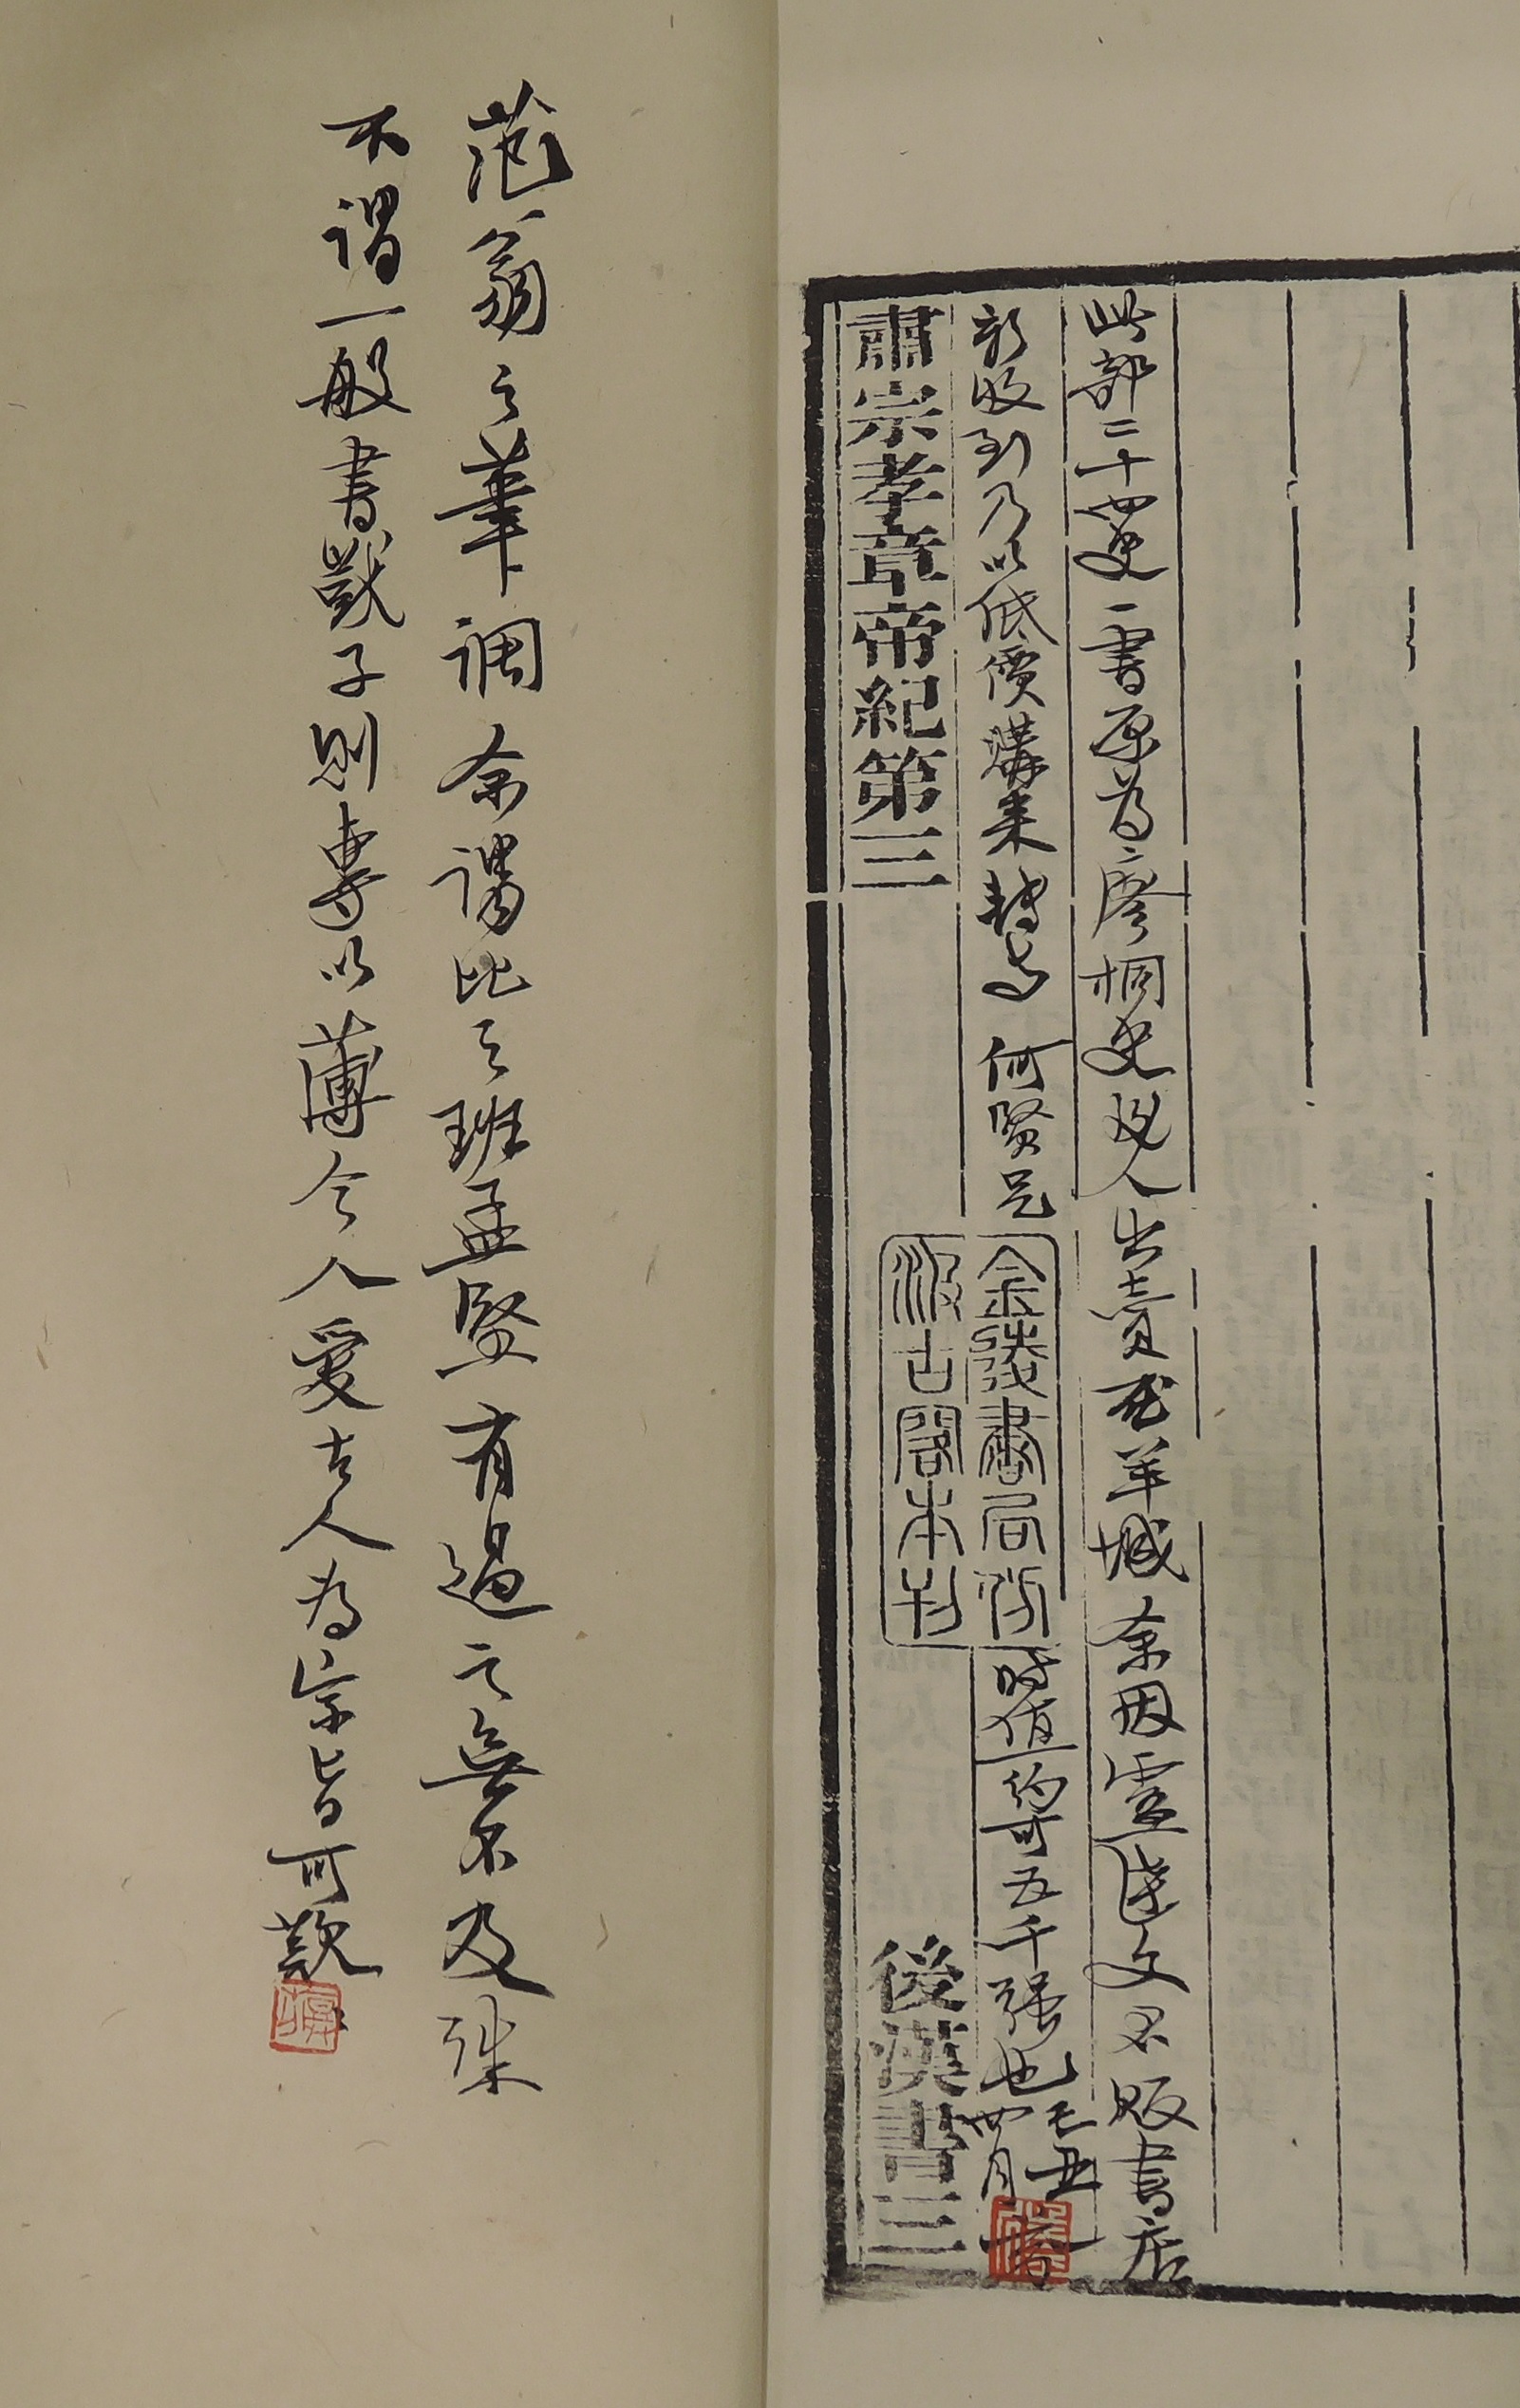 此部二十四史一書原為廖桐史後人出賣於羊城余因遂文不販書店
新收到乃以低價購來轉與何賢兄
時值約可五千強也
己丑
四月
肅宗孝章帝紀第三
後漢書三
金陵書局仿
汲古閣本刊
范翁之筆調余謂比之班孟堅有過之無不及殊
不謂一般書獃子則專以薄今人愛古人為宗旨可歎